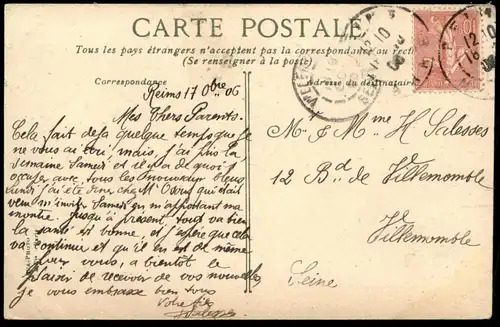 CARTE POSTALE
Tous les pays étrangers n'acceptent pas la correspondance au recto
(Se renseigner à la poste)
Correspondance
Adresse du destinataire
Reims 17 8bre 06
Mes Chers Parents.
Cela fait déjà quelque temps que je
ne vous ai écri mais, j'ai fini la
semaine Samedi et il y a de quoi s'
occuper avec tous les nouveaux bleus
j'ai été diner chez M. qui était
venu m'inviter Samedi en m'apportant ma
montre. Jusqu'à présent, tout va bien
la santé est bonne, et j'espère que cela
va continuer et qu'il en est de même
pour vous, a bientôt le
plaisir de recevoir de vos nouvelles
je vous embrasse bien tous
Votre fils
M. & Mme H. Salesses
12 Bd. de Villemomble
Villemomble
Seine